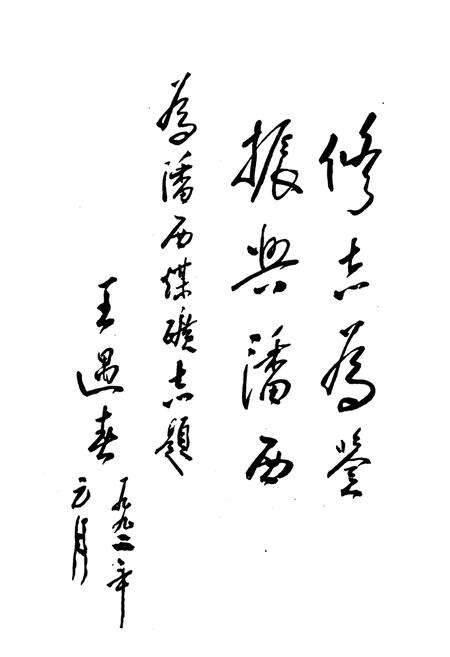 修志為鉴
振興潘西
為潘西煤礦志題
王遇春
一九九二年
元月